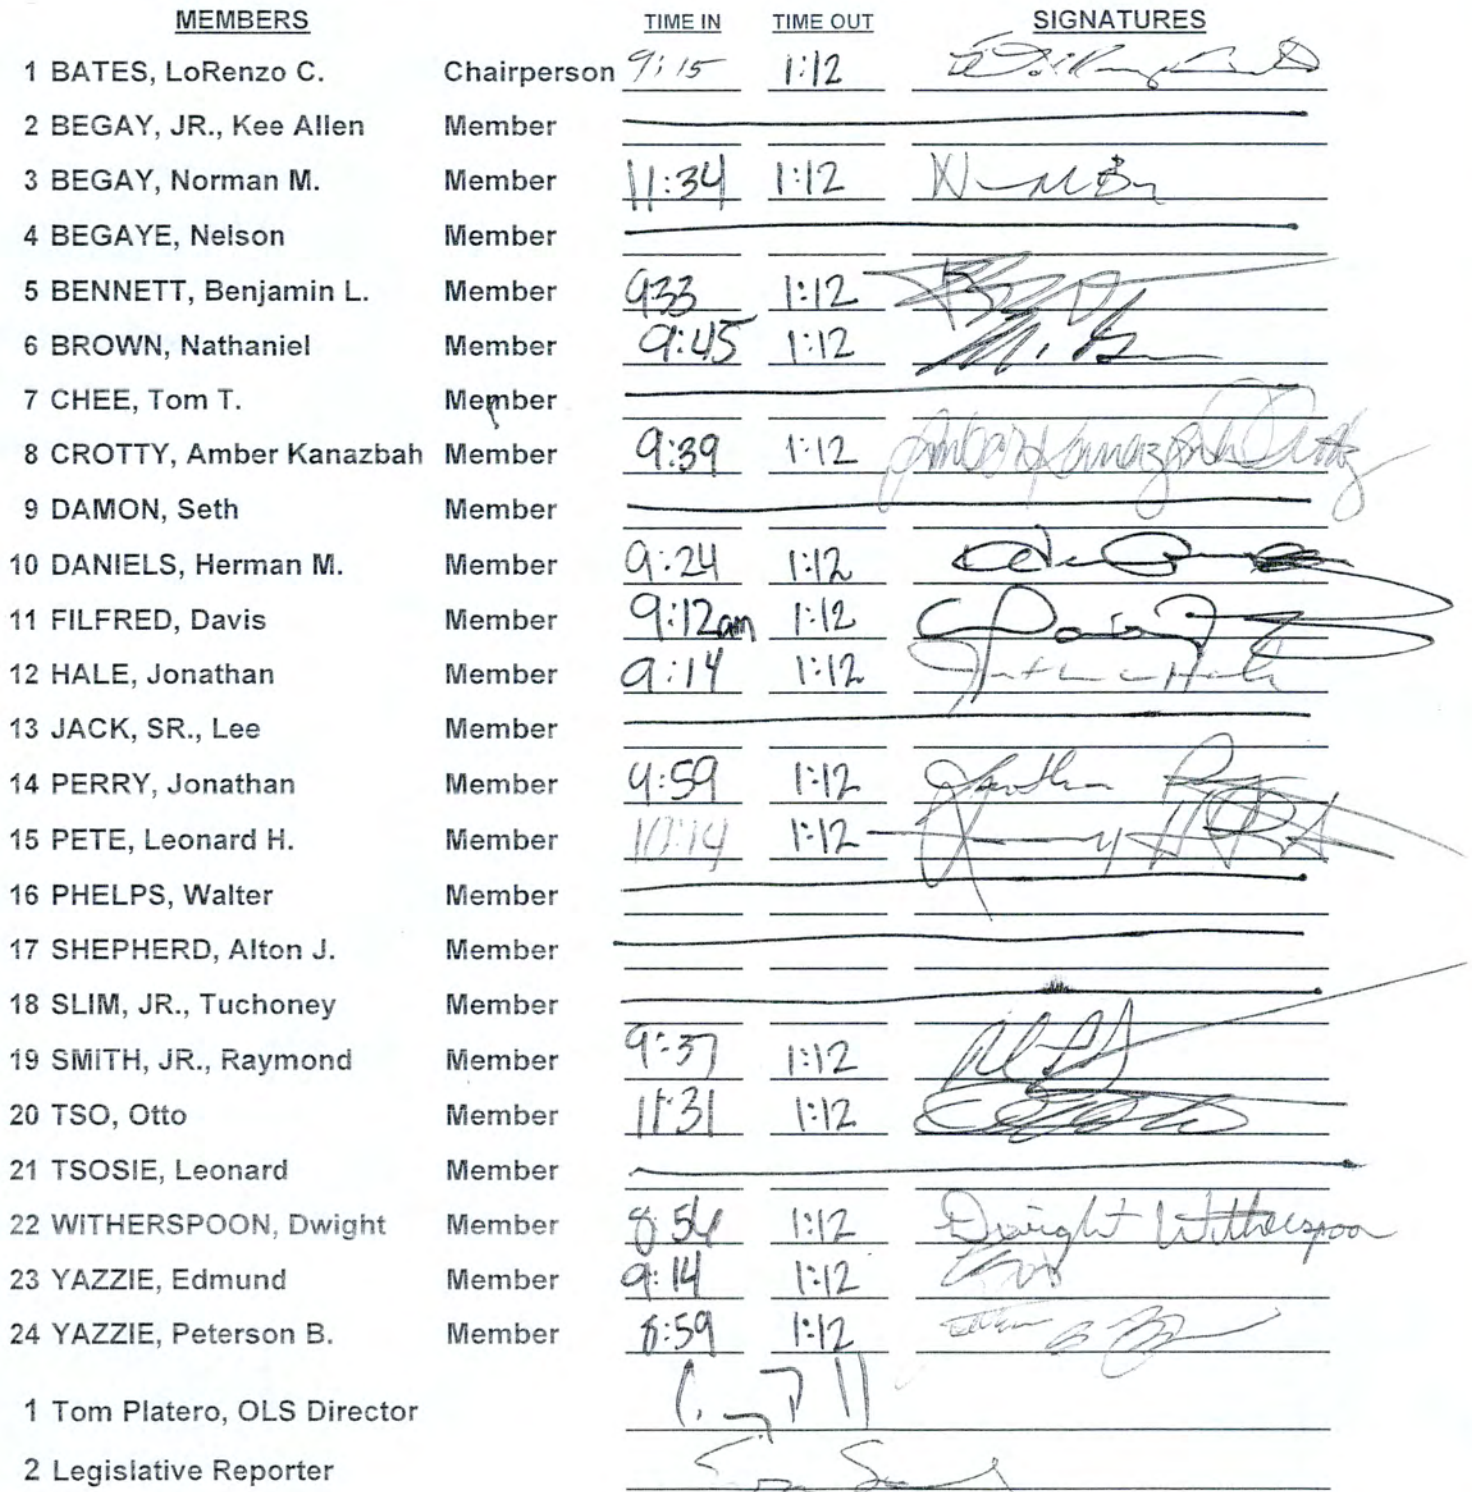 MEMBERS TIME IN TIME OUT SIGNATURES
1 BATES, LoRenzo C. Chairperson 9:15 1:12
2 BEGAY, JR., Kee Allen Member
3 BEGAY, Norman M. Member 11:34 1:12
4 BEGAYE, Nelson Member
5 BENNETT, Benjamin L. Member 933 1:12
6 BROWN, Nathaniel Member 9:45 1:12
7 CHEE, Tom T. Member
8 CROTTY, Amber Kanazbah Member 9:39 1:12 Amber Kanazbah Crotty
9 DAMON, Seth Member
10 DANIELS, Herman M. Member 9:24 1:12
11 FILFRED, Davis Member 9:12am 1:12
12 HALE, Jonathan Member 9:14 1:12
13 JACK, SR., Lee Member
14 PERRY, Jonathan Member 9:59 1:12 Jonathan
15 PETE, Leonard H. Member 10:14 1:12
16 PHELPS, Walter Member
17 SHEPHERD, Alton J. Member
18 SLIM, JR., Tuchoney Member
19 SMITH, JR., Raymond Member 9:37 1:12
20 TSO, Otto Member 11:31 1:12
21 TSOSIE, Leonard Member
22 WITHERSPOON, Dwight Member 8:56 1:12 Dwight Witherspoon
23 YAZZIE, Edmund Member 9:14 1:12
24 YAZZIE, Peterson B. Member 8:59 1:12
1 Tom Platero, OLS Director
2 Legislative Reporter